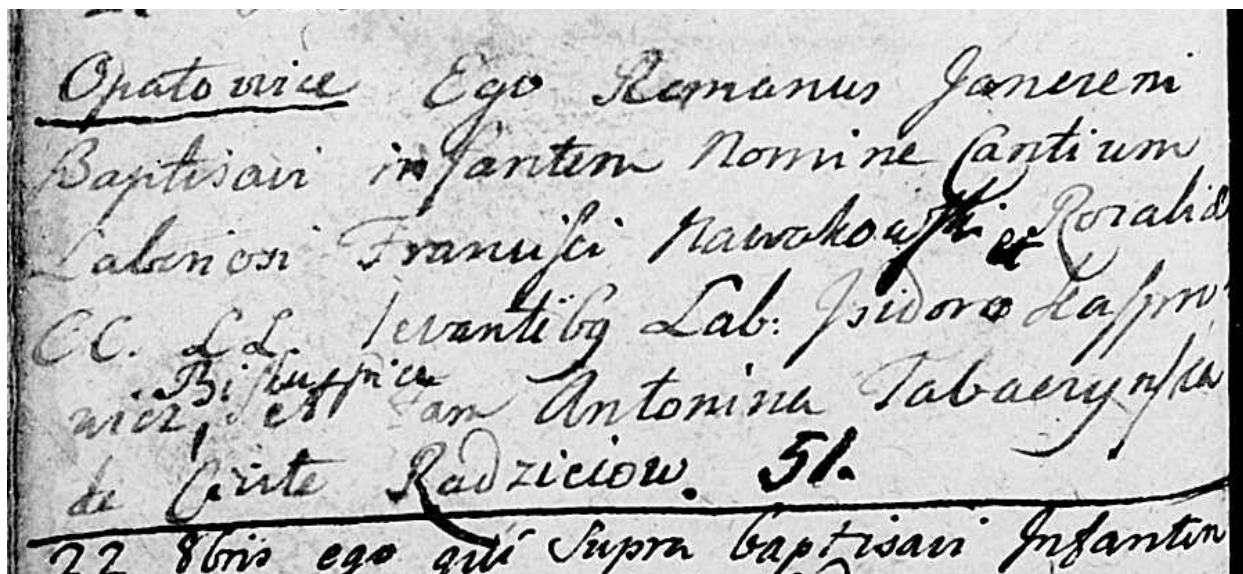 Opatowice Ego Romanus Janereni
Baptisavi infantem Nomine Cantium
Laboriosi Francisci Nawakowski et Rozalia
CC. LL. levantibq Lab: Isidoro Kaspro
wicz, de tam Antonina Tabaczynska
de Civite Radziciow. 51.
22 8bris ego qui Supra baptisavi Infantem